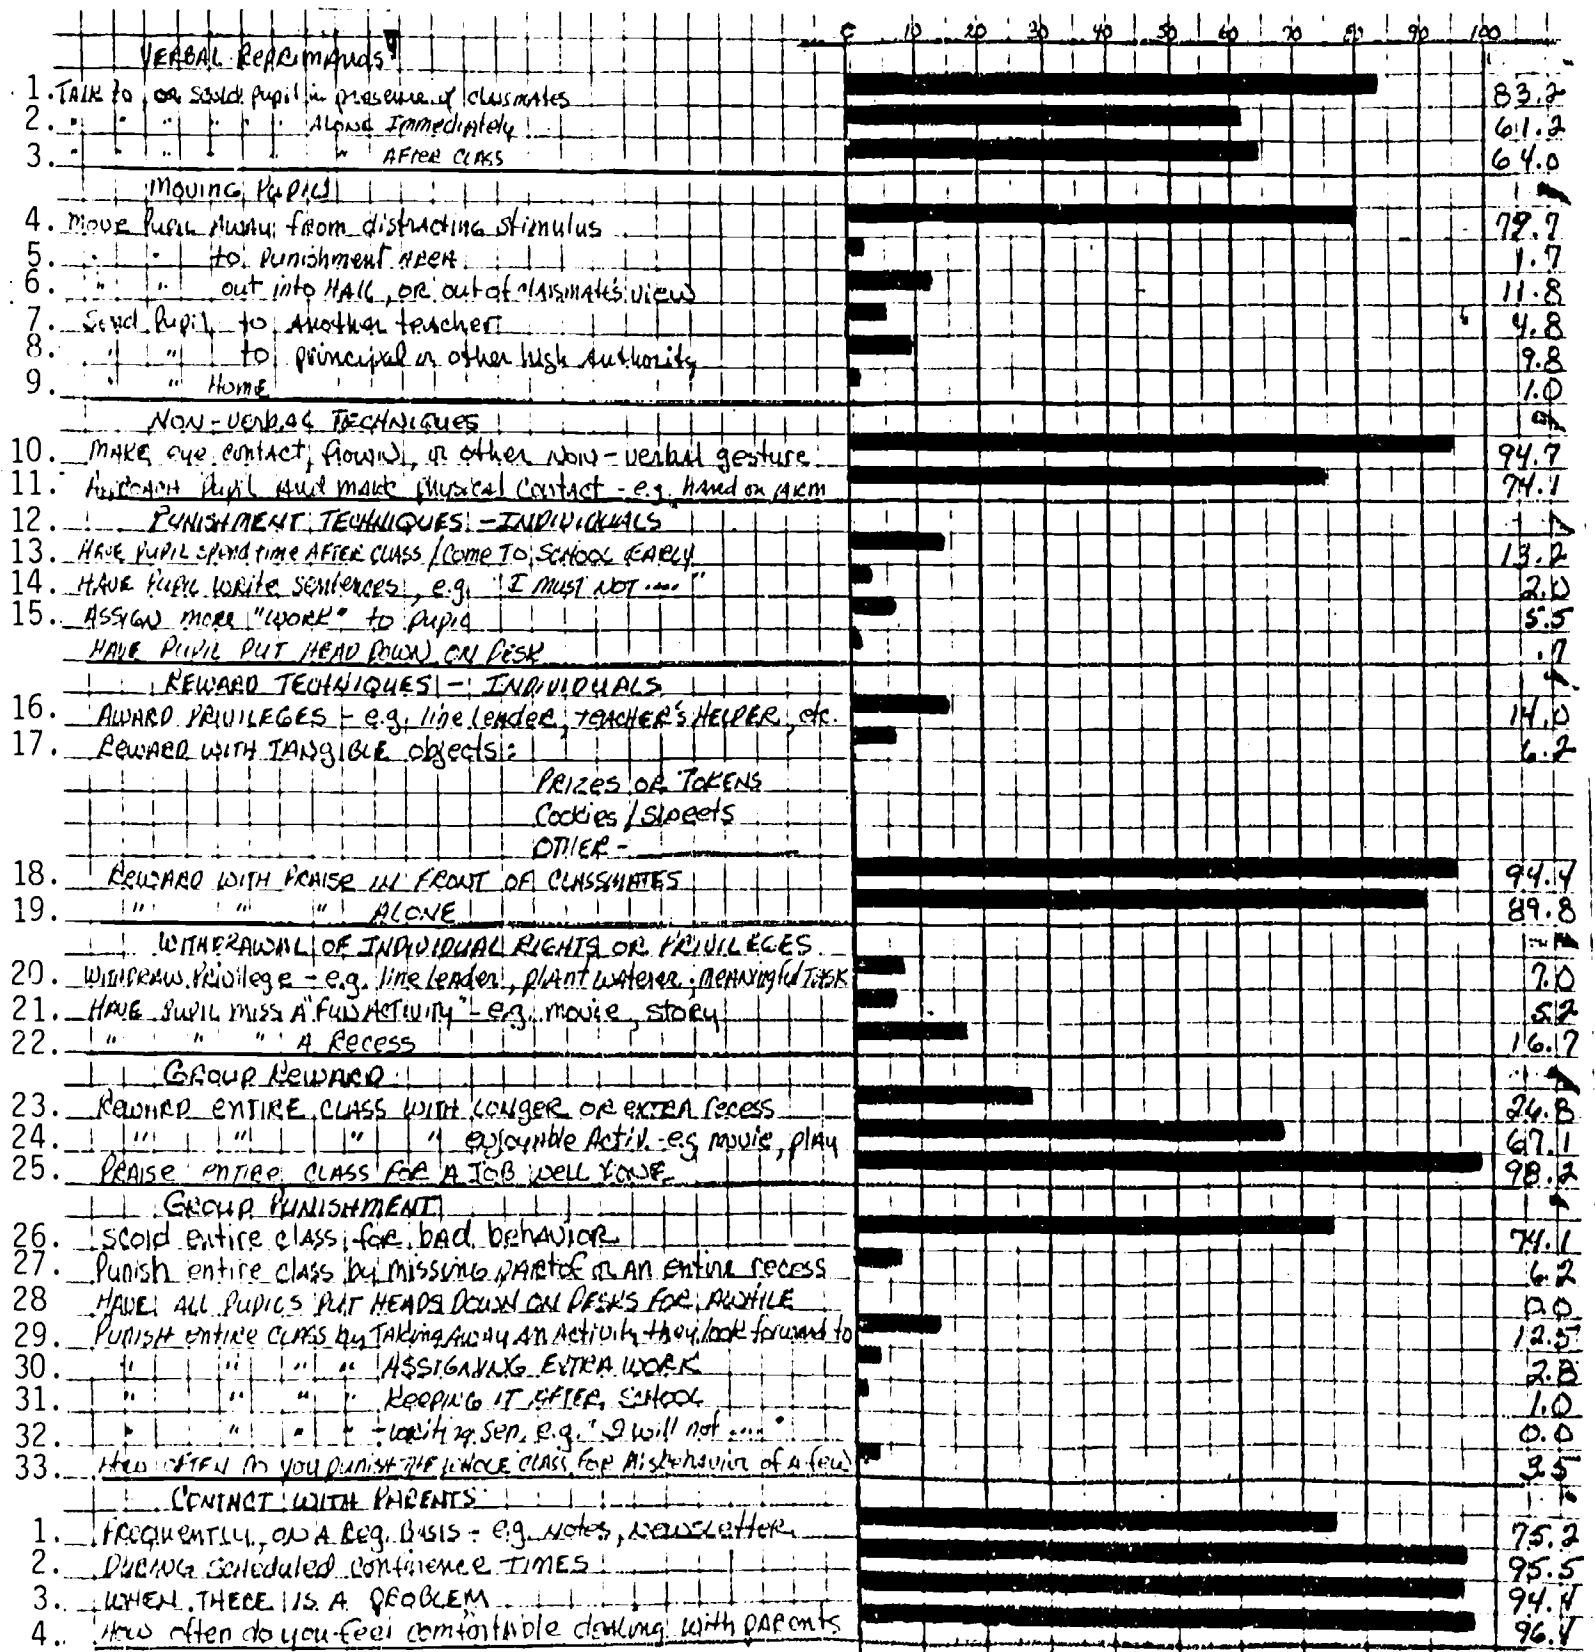 0 10 20 30 40 50 60 70 80 90 100
VERBAL REPRIMANDS
1. TALK to, or scold pupil in presence of classmates 83.2
2. " " " " " " ALONE Immediately 61.2
3. " " " " " " AFTER CLASS 64.0
MOVING PUPILS
4. MOVE PUPIL AWAY from distracting stimulus 79.7
5. " " to punishment AREA 1.7
6. " " out into HALL, OR out of classmate's view 11.8
7. Send Pupil to another teacher 4.8
8. " " to principal or other high authority 9.8
9. " " Home 1.0
NON-VERBAL TECHNIQUES
10. MAKE eye contact, frown, or other NON-verbal gesture 94.7
11. Approach Pupil and make physical contact - e.g. Hand on ARM 74.1
12. PUNISHMENT TECHNIQUES - INDIVIDUALS
13. HAVE PUPIL spend time AFTER CLASS / COME TO SCHOOL EARLY 13.2
14. HAVE PUPIL write sentences, e.g. "I MUST NOT ...." 2.0
15. ASSIGN more "WORK" to pupil 5.5
HAVE PUPIL PUT HEAD DOWN ON DESK .7
REWARD TECHNIQUES - INDIVIDUALS
16. AWARD PRIVILEGES - e.g. line leader, TEACHER'S HELPER, etc. 14.0
17. REWARD WITH TANGIBLE objects: 6.2
PRIZES OR TOKENS
Cookies / Sweets
OTHER -
18. REWARD WITH PRAISE IN FRONT OF CLASSMATES 94.4
19. " " " ALONE 89.8
WITHDRAWAL OF INDIVIDUAL RIGHTS OR PRIVILEGES
20. WITHDRAW Privilege - e.g. line leader, plant waterer, MEANINGful TASK 7.0
21. HAVE PUPIL MISS A "FUN ACTIVITY" - e.g. movie, story 5.2
22. " " " A Recess 16.7
GROUP REWARD
23. REWARD ENTIRE CLASS WITH LONGER OR EXTRA recess 26.8
24. " " " " enjoyable Activ. - e.g. movie, play 67.1
25. PRAISE ENTIRE CLASS FOR A JOB WELL DONE 98.2
GROUP PUNISHMENT
26. scold entire class for bad behavior 74.1
27. Punish entire class by missing PART OF OR AN entire recess 6.2
28 HAVE ALL PUPILS PUT HEADS DOWN ON DESKS FOR AWHILE 0.0
29. PUNISH entire CLASS by TAKING AWAY AN Activity they look forward to 12.5
30 " " " " ASSIGNING EXTRA WORK 2.8
31 " " " " KEEPING IT AFTER SCHOOL 1.0
32. " " " " - writing sen. e.g. "I will not ...." 0.0
33. HOW OFTEN DO YOU PUNISH THE WHOLE CLASS FOR Misbehavior of a few 3.5
CONTACT WITH PARENTS
1. FREQUENTLY, ON A REG. BASIS - e.g. Notes, NEWSLETTER 75.2
2. DURING scheduled conference TIMES 95.5
3. WHEN THERE IS A PROBLEM 94.4
4. How often do you feel comfortable dealing with PARENTS 96.4